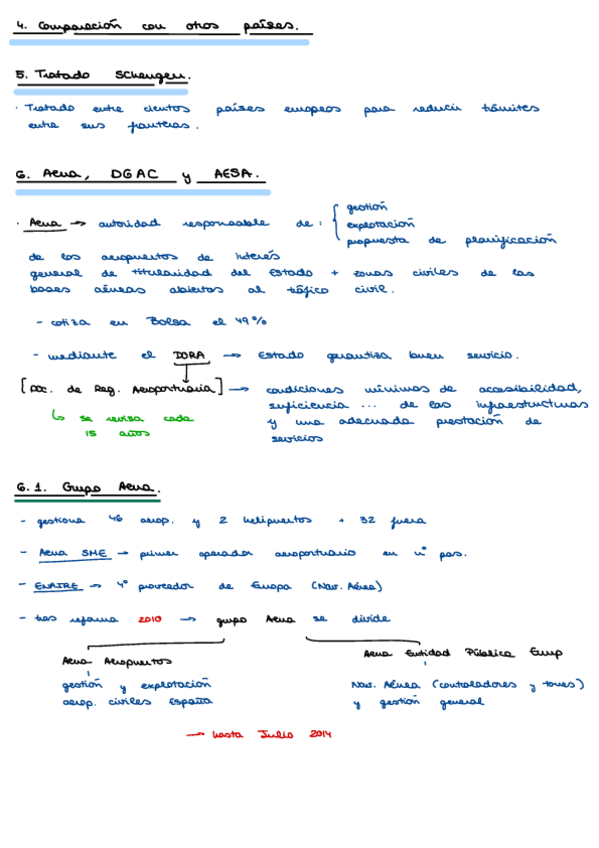 4. Comparación con otros países.
5. Tratado Schengen.
· Tratado entre cientos países europeos para reducir trámites
entre sus fronteras.
6. Aena, DGAC y AESA.
· Aena → autoridad responsable de: { gestión
explotación
propuesta de planificación
de los aeropuertos de interés
general de titularidad del Estado + zonas civiles de las
bases aéreas abiertas al tráfico civil.
- cotiza en Bolsa el 49%
- mediante el DORA → Estado garantiza buen servicio.
[Doc. de Reg. Aeroportuaria] → condiciones mínimas de accesibilidad,
suficiencia ... de las infraestructuras
y una adecuada prestación de
servicios
↳ se revisa cada
15 años
6.1. Grupo Aena.
- gestiona 46 aerop. y 2 helipuertos + 32 fuera
- Aena SME → primer operador aeroportuario en nº pas.
- ENAIRE → 4º proveedor de Europa (Nav. Aérea)
- tras reforma 2010 → grupo Aena se divide
Aena Aeropuertos
gestión y explotación
aerop. civiles España
Aena Entidad Pública Emp
Nav. Aérea (controladores y torres)
y gestión general
→ hasta Julio 2014